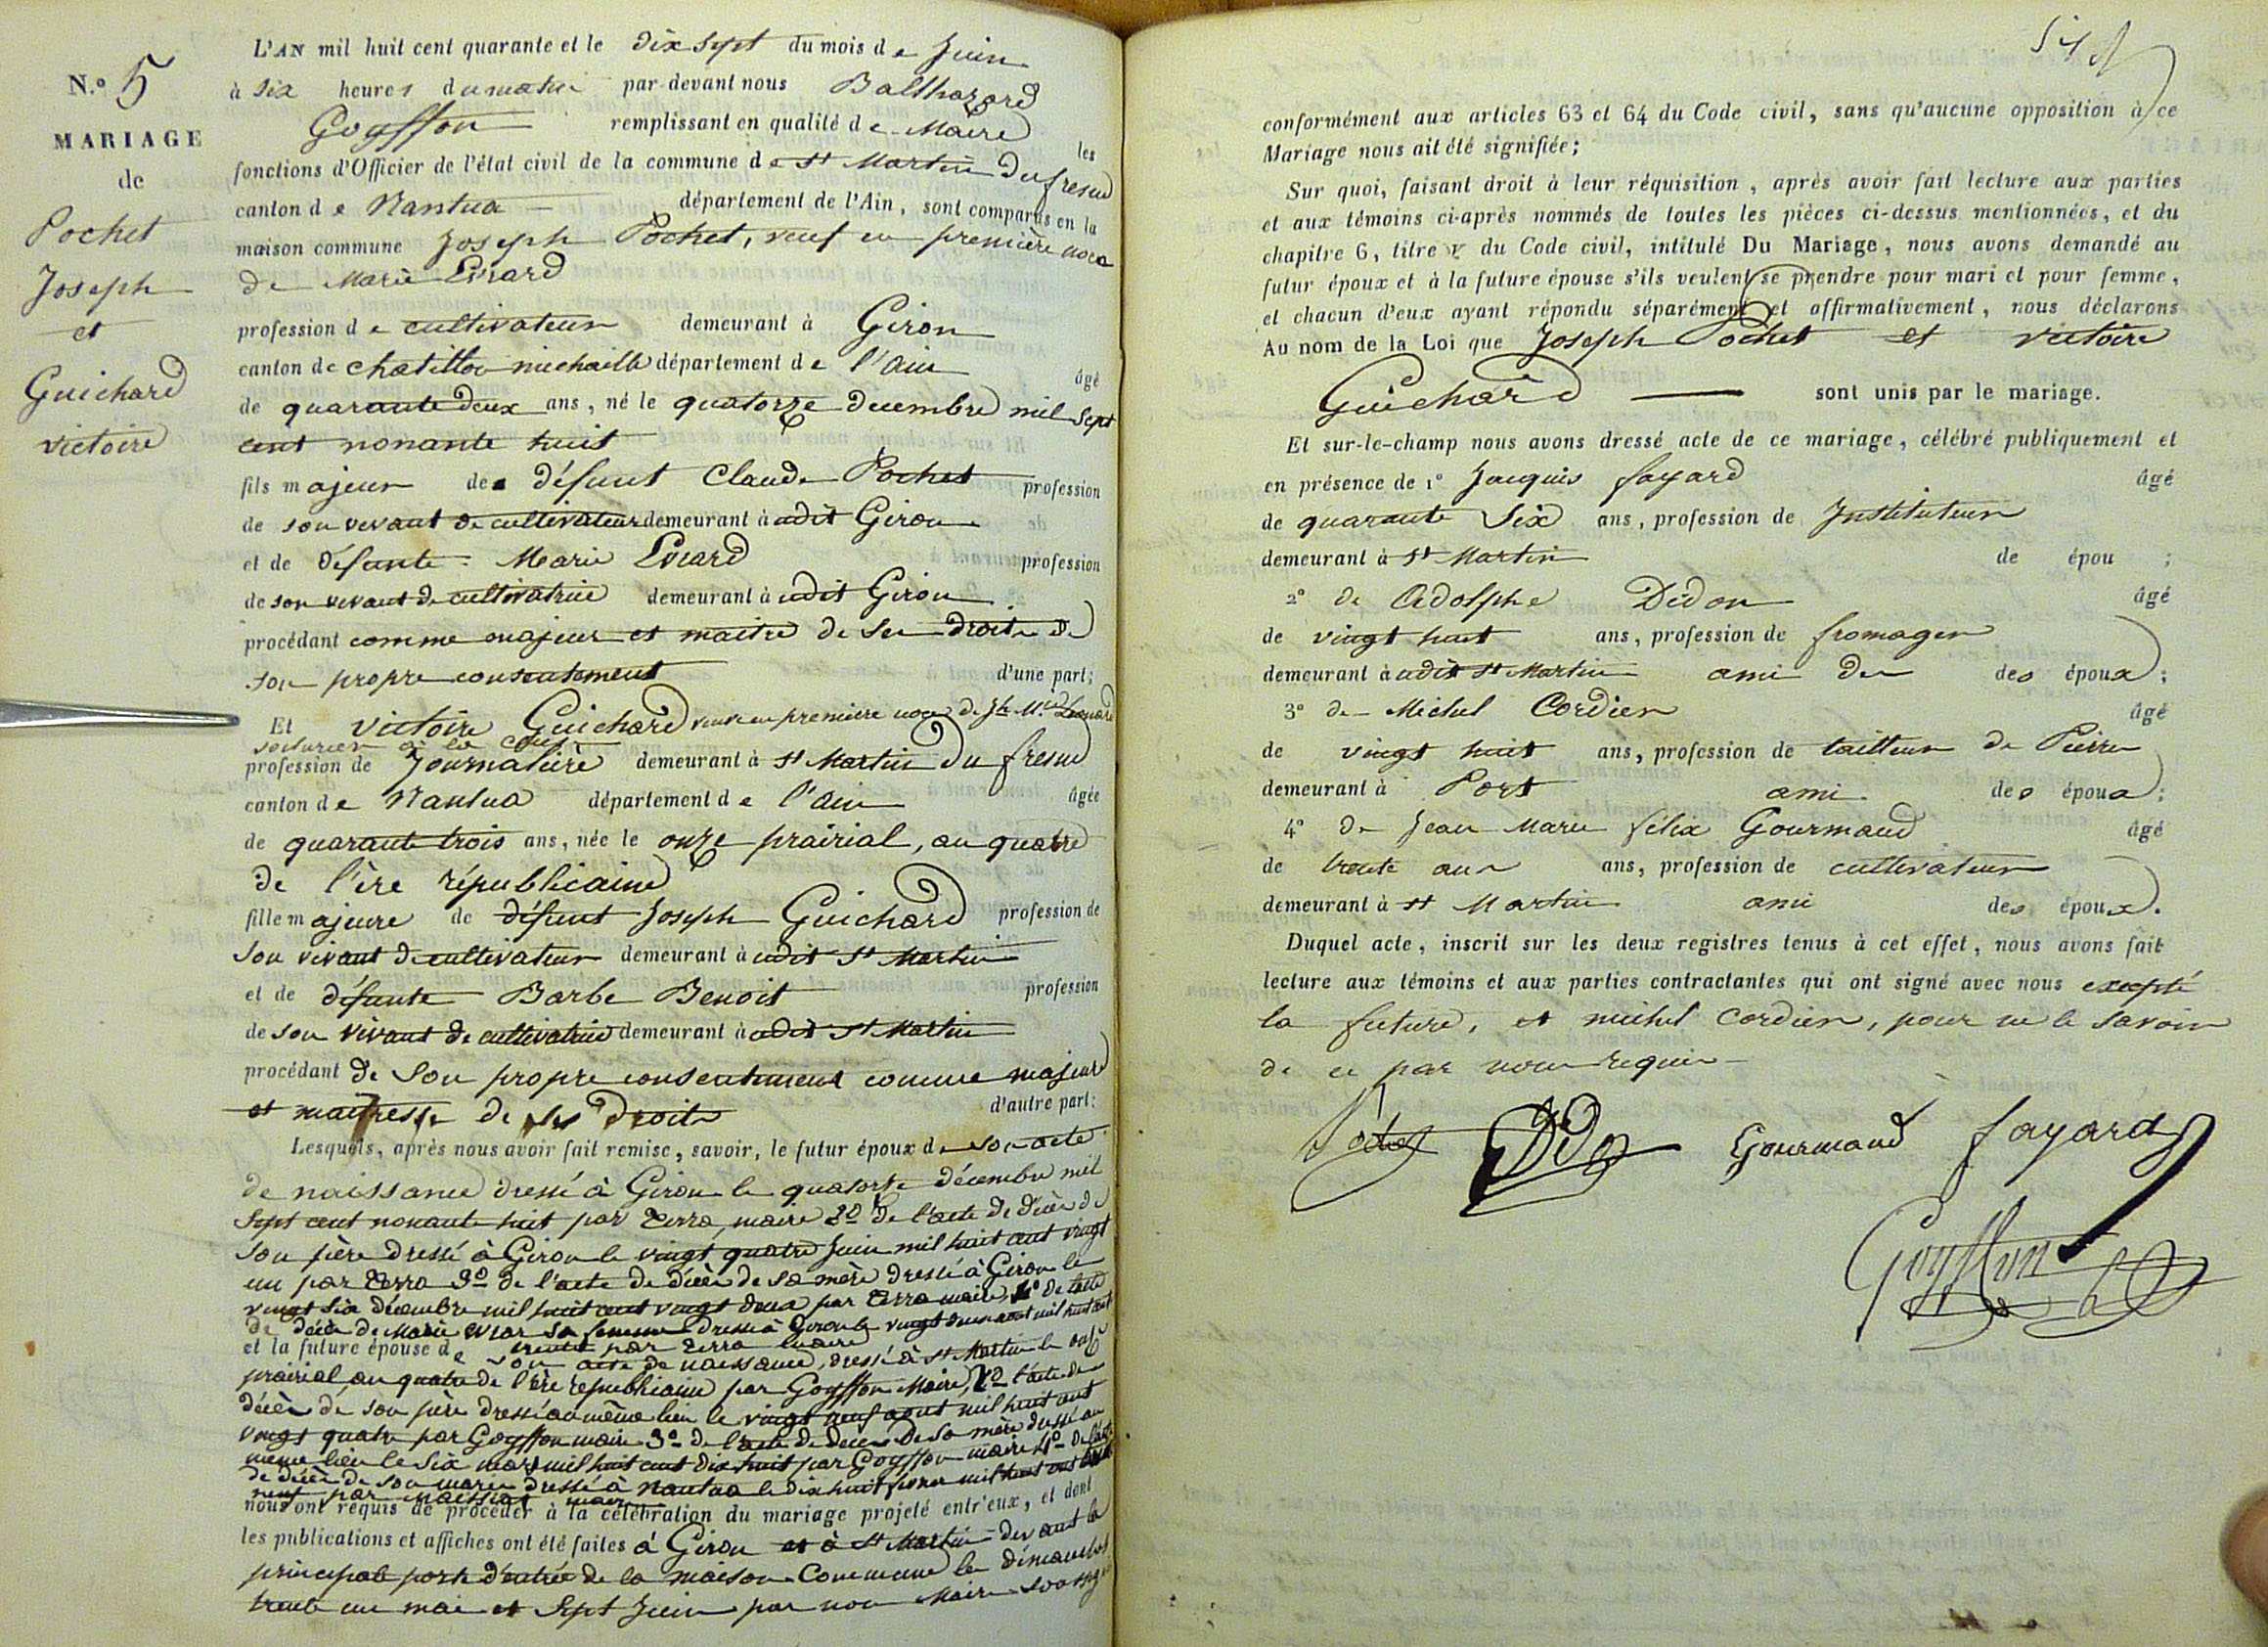 N.° 5
MARIAGE
de
Pochet
Joseph
et
Guichard
victoire
L'AN mil huit cent quarante et le dix sept du mois de Juin
à six heures du matin par-devant nous Balthazard
Goyffon remplissant en qualité de Maire les
fonctions d'Officier de l'état civil de la commune de St Martin Du fresne
canton de Nantua département de l'Ain, sont comparus en la
maison commune Joseph Pochet, veuf en première noce
de Marie Evrard
profession de cultivateur demeurant à Giron
canton de chatillon michaille département de l'ain âgé
de quarante deux ans, né le quatorze decembre mil sept
cent nonante huit
fils majeur de défunt Claude Pochet profession
de son vivant de cultivateur demeurant à udit Giron
et de défunte Marie profession
de son vivant de cultivatrice demeurant à udit Giron
procédant comme majeur et maitre de ses droits de
son propre consentement d'une part;
Et victoire Guichard veuve en première noce de Jh M.ie
voiturier
profession de Journalière demeurant à St Martin Du fresne
canton de Nantua département de l'ain âgée
de quarante trois ans, née le onze prairial, an quatre
de l'ère républicaine
fille majeure de défunt Joseph Guichard profession de
son vivant de cultivateur demeurant à udit St Martin
et de défunte Barbe Benoit profession
de son vivant de cultivatrice demeurant à udit St Martin
procédant de son propre consentement comme majeure
et maitresse de ses droits d'autre part:
Lesquels, après nous avoir fait remise, savoir, le futur époux de son acte
de naissance dressé à Giron le quatorze décembre mil
sept cent nonante huit par Evrra, maire 2° de l'acte de décès de
son père dressé à Giron le vingt quatre Juin mil huit cent vingt
un par Evrra 3° de l'acte de décès de sa mère dressé à Giron le
vingt six décembre mil huit cent vingt deux par Evrra maire, 4° de l'acte
de décès de Marie sa femme dressé à Giron le vingt aout mil huit cent
trente par Evrra maire
et la future épouse de son acte de naissance, dressé à St Martin le onze
prairial an quatre de l'ère républicaine par Goyffon Maire, 2° l'acte de
décès de son père dressé au même lieu le vingt neuf aout mil huit cent
vingt quatre par Goyffon maire 3° de l'acte de deces de sa mère dressé au
même lieu le six mars mil huit cent dix huit par Goyffon maire 4° de l'acte
de décès de son mari dressé à Nantua le dix huit février mil huit cent trente
neuf par maire
nous ont requis de procéder à la célébration du mariage projeté entr'eux, et dont
les publications et affiches ont été faites à Giron et à St Martin devant la
principale porte d'entrée de la maison Commune les dimanches
trente un mai et Sept Juin par nous Maire soussigné
conformément aux articles 63 et 64 du Code civil, sans qu'aucune opposition à ce
Mariage nous ait été signifiée;
Sur quoi, faisant droit à leur réquisition, après avoir fait lecture aux parties
et aux témoins ci-après nommés de toutes les pièces ci-dessus mentionnées, et du
chapitre 6, titre V du Code civil, intitulé Du Mariage, nous avons demandé au
futur époux et à la future épouse s'ils veulent se prendre pour mari et pour femme,
et chacun d'eux ayant répondu séparément et affirmativement, nous déclarons
Au nom de la Loi que Joseph Pochet et victoire
Guichard sont unis par le mariage.
Et sur-le-champ nous avons dressé acte de ce mariage, célébré publiquement et
en présence de 1° Jacquis fayard âgé
de quarante six ans, profession de Instituteur
demeurant à St Martin de épou ;
2° de Adolphe Didon âgé
de vingt huit ans, profession de fromager
demeurant à udit St Martin ami des époux ;
3° de Michel Cordier âgé
de vingt huit ans, profession de tailleur de Pierre
demeurant à Port ami des époux ;
4° de Jean Marie félix Gourmand âgé
de trente ans ans, profession de cultivateur
demeurant à St Martin ami des époux.
Duquel acte, inscrit sur les deux registres tenus à cet effet, nous avons fait
lecture aux témoins et aux parties contractantes qui ont signé avec nous excepté
la future, et michel Cordier, pour ne le savoir
de ce par nous requis
Pochet Didon Gourmand fayard
Goyffon